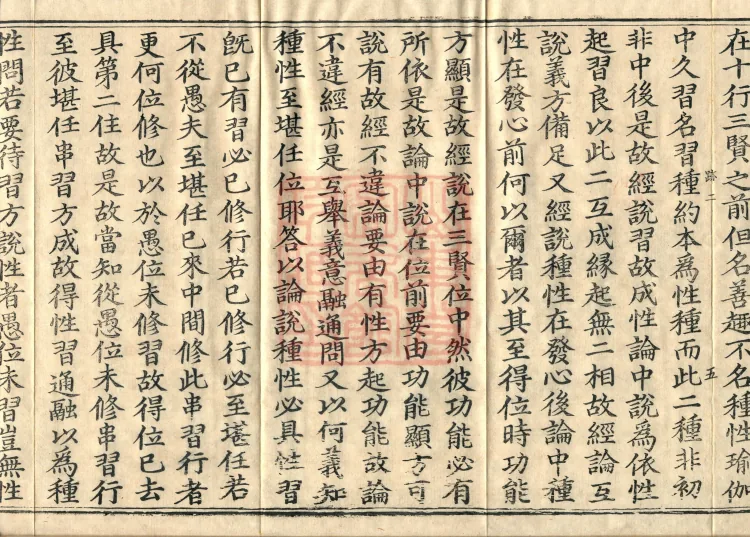 在十行三賢之前但名善趣不名種性瑜伽
中久習名習種約本爲性種而此二種非初
跡二 五
非中後是故經說習故成性論中說爲依性
起習良以此二互成縁起無二相故經論互
說義方備足又經說種性在發心後論中種
性在發心前何以爾者以其至得位時功能
方顯是故經說在三賢位中然彼功能必有
所依是故論中說在位前要由功能顯方可
說有故經不違論要由有性方起功能故論
不違經亦是互舉義意融通問又以何義知
種性至堪任位耶答以論說種性必具性習
旣已有習必已修行若已修行必至堪任若
不從愚夫至堪任已來中間修此串習行者
更何位修也以於愚位未修習故得位已去
具第二住故是故當知從愚位未修串習行
至彼堪任串習方成故得性習通融以為種
性問若要待習方說性者愚位未習豈無性